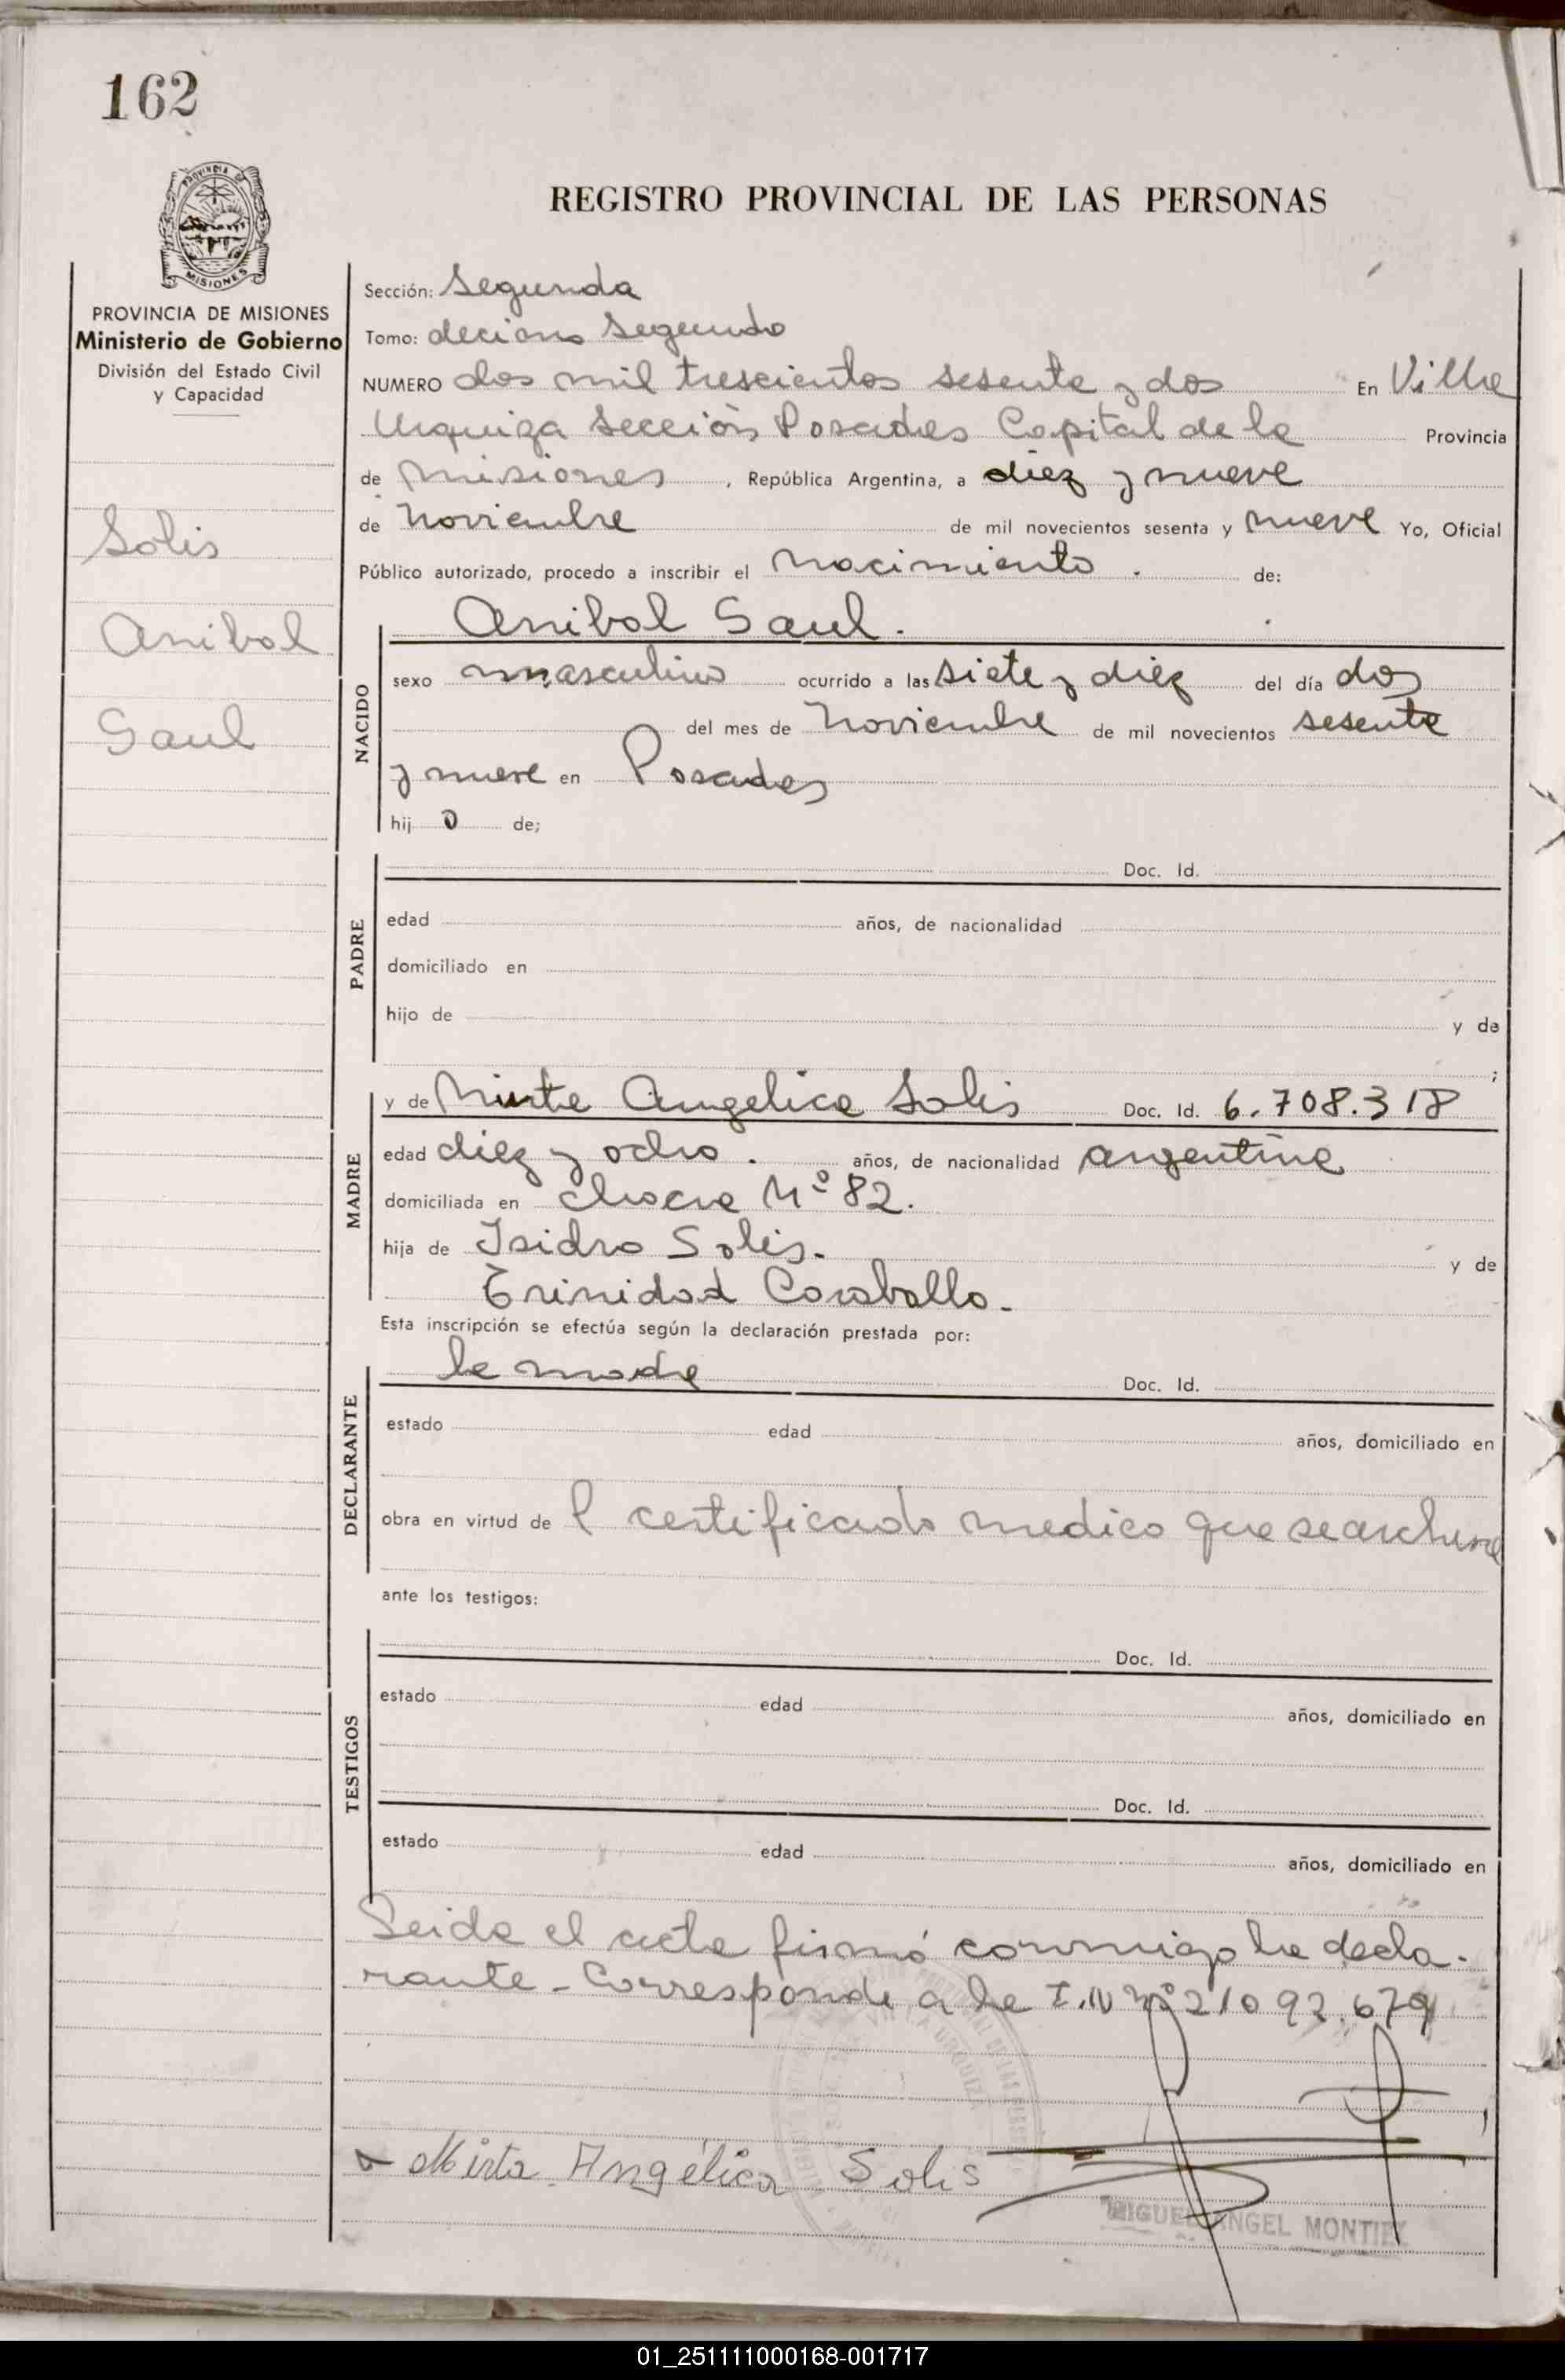 162
PROVINCIA DE MISIONES
REGISTRO PROVINCIAL DE LAS PERSONAS
PROVINCIA DE MISIONES
Ministerio de Gobierno
División del Estado Civil
y Capacidad
Solis
Anibal
Saul
Sección: Segunda
Tomo: decimo Segundo
NUMERO dos mil trescientos sesenta y dos En Villa
Urquiza Sección Posadas Capital de la Provincia
de Misiones, República Argentina, a diez y nueve
de Noviembre de mil novecientos sesenta y nueve Yo, Oficial
Público autorizado, procedo a inscribir el Nacimiento. de:
NACIDO
Anibal Saul.
sexo masculino ocurrido a las siete y diez del día dos
del mes de Noviembre de mil novecientos sesenta
y nueve en Posadas
hij o de;
PADRE
Doc. Id.
edad años, de nacionalidad
domiciliado en
hijo de y de
;
MADRE
y de Mirta Angelica Solis Doc. Id. 6.708.318
edad diez y ocho. años, de nacionalidad argentina
domiciliada en chacra Nº 82.
hija de Isidro Solis. y de
Trinidad Caraballo.
Esta inscripción se efectúa según la declaración prestada por:
DECLARANTE
la madre Doc. Id.
estado edad años, domiciliado en
obra en virtud de l certificado medico que se archiva
ante los testigos:
TESTIGOS
Doc. Id.
estado edad años, domiciliado en
Doc. Id.
estado edad años, domiciliado en
Leida el acta firmó conmigo la decla-
rante - Corresponde a la I.N Nº 21092.679
Mirta Angélica Solis
MIGUEL ANGEL MONTIEL
01_251111000168-001717